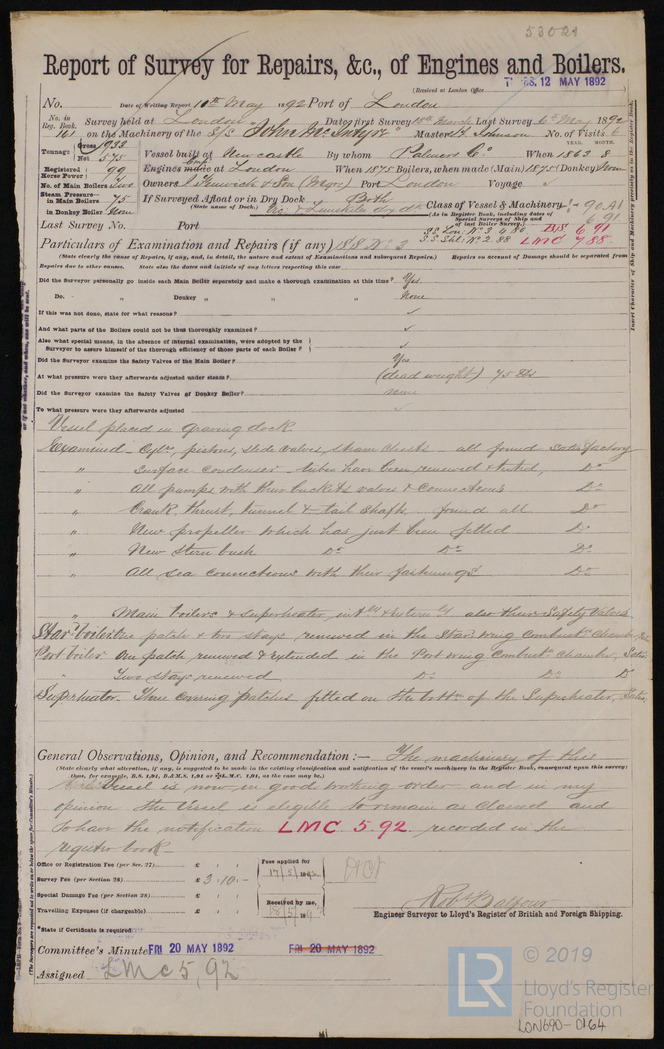 53021
Report of Survey for Repairs, &c., of Engines and Boilers.
(Received at London Office
THURS. 12 MAY 1892
No. Date of Writing Report 10th May 1892 Port of London
No. in Reg. Book. 161 Survey held at London Date: first Survey 10th March Last Survey 6th May 1892
on the Machinery of the S/S "John McIntyre" Master H. Johnson No. of Visits 6
Tonnage Gross 1933 Net 575 Vessel built at Newcastle By whom Palmers Co. When YEAR. 1863 MONTH. 8
Registered Horse Power 99 Engines made at London When 1875 Boilers, when made (Main) 1875 (Donkey) None
No. of Main Boilers Two Owners J. Fenwick & Son (Mgrs) Port London Voyage
Steam Pressure in Main Boilers 75 If Surveyed Afloat or in Dry Dock Both
in Donkey Boiler None (State name of Dock.) & Limekiln dry dk Class of Vessel & Machinery 90 A1
(As in Register Book, including dates of Special Surveys of Ship and of last Boiler Survey.) 6.91
Last Survey No. Port S.S. Lon. No. 3 4 86 BS 6 91
S.S. Shl. No. 2 88 LMC 7 88
Particulars of Examination and Repairs (if any) SS No 3
(State clearly the cause of Repairs, if any, and, in detail, the nature and extent of Examinations and subsequent Repairs.) Repairs on account of Damage should be separated from
Repairs due to other causes. State also the dates and initials of any letters respecting this case
Did the Surveyor personally go inside each Main Boiler separately and make a thorough examination at this time? Yes
Do. " Donkey " " " None
If this was not done, state for what reasons?
And what parts of the Boilers could not be thus thoroughly examined?
Also what special means, in the absence of internal examination, were adopted by the Surveyor to assure himself of the thorough efficiency of those parts of each Boiler?
Did the Surveyor examine the Safety Valves of the Main Boiler? Yes
At what pressure were they afterwards adjusted under steam? (dead weight) 75 lbs
Did the Surveyor examine the Safety Valves of Donkey Boiler? none
To what pressure were they afterwards adjusted
Vessel placed in graving dock
Examined - Cylrs, pistons, slide valves, steam chests - all found satisfactory
" Surface condenser - tubes have been renewed & tested, Do
" All pumps with their buckets valves & connections Do
" Crank, thrust, tunnel & tail shaft found all Do
" New propeller which has just been fitted Do
" New stern bush Do Do Do
" All sea connections with their fastenings Do
" Main boilers & superheater, intly & externly also their Safety Valves
Star'd boiler One patch & two stays renewed in the Star'd wing Combustn chamber,
Port boiler One patch renewed & extended in the Port wing Combustn chamber, Satis.
" Two stays renewed Do Do Do
Superheater. Three covering patches fitted on the bottm of the Superheater, Satis.
General Observations, Opinion, and Recommendation :— The machinery of this
(State clearly what alteration, if any, is suggested to be made in the existing classification and notification of the vessel's machinery in the Register Book, consequent upon this survey:
thus, for example, B.S. 1,91, B.&M.S. 1,91 or ✠L.M.C. 1,91, as the case may be.)
Vessel is now in good working order and in my
opinion the Vessel is eligible to remain as classed and
to have the notification LMC 5.92 recorded in the
register book -
Office or Registration Fee (per Sec. 27) £ : :
Survey Fee (per Section 28) £ 3.10.-
Special Damage Fee (per Section 28) £ : :
Travelling Expenses (if chargeable) £ : :
Fees applied for
17/5/1892
Received by me,
18/5/1892
*State if Certificate is required
Robt Balfour
Engineer Surveyor to Lloyd's Register of British and Foreign Shipping.
Committee's Minute FRI 20 MAY 1892 FRI 20 MAY 1892
Assigned LMC 5,92
Insert Character of Ship and Machinery precisely as in the Register Book.
(The Surveyors are requested not to write on or below the space for Committee's Minute.)
© 2019
LR
Lloyd's Register
Foundation
LON690-0164